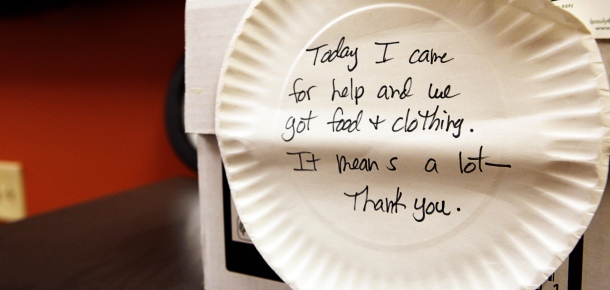 Today I came
for help and we
got food + clothing.
It means a lot—
Thank you.